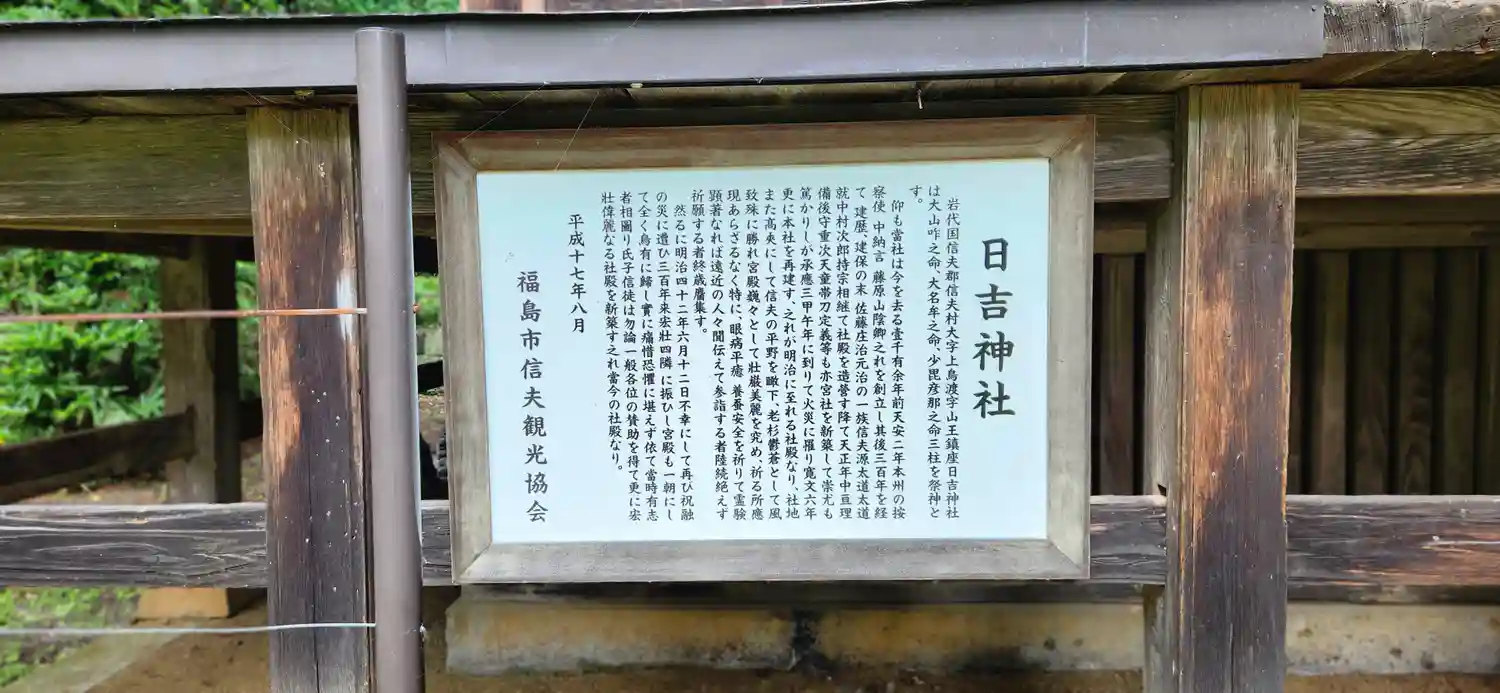 日吉神社
岩代国信夫郡信夫村大字上鳥渡字山王鎮座日吉神社
は大山咋之命、大名牟之命、少毘彦那之命三柱を祭神と
す。
仰も當社は今を去る壹千有余年前天安二年本州の按
察使 中納言 藤原山陰卿之れを創立し其後三百年を経
て 建歴、建保の末 佐藤庄治元治の一族信夫源太道太道
就中村次郎持宗相継て社殿を造營す降て天正年中亘理
備後守重次天童帯刀定義等も亦宮社を新築して崇尤も
篤かりしが承應三甲午年に到りて火災に罹り寛文六年
更に本社を再建す、之れが明治に至れる社殿なり、社地
また高夾にして信夫の平野を瞰下、老杉鬱蒼として風
致殊に勝れ宮殿巍々として壮厳美麗を究め、祈る所應
現あらざるなく特に、眼病平癒 養蚕安全を祈りて霊験
顕著なれば遠近の人々聞伝えて参詣する者陸続絶えず
祈願する者終歳麕集す。
然るに明治四十二年六月十二日不幸にして再び祝融
の災に遭ひ三百年来宏壮四隣に振ひし宮殿も一朝にし
て全く烏有に歸し實に痛惜恐懼に堪えず依て當時有志
者相圖り氏子信徒は勿論一般各位の賛助を得て更に宏
壮偉麗なる社殿を新築す之れ當今の社殿なり。
平成十七年八月
福島市信夫観光協会